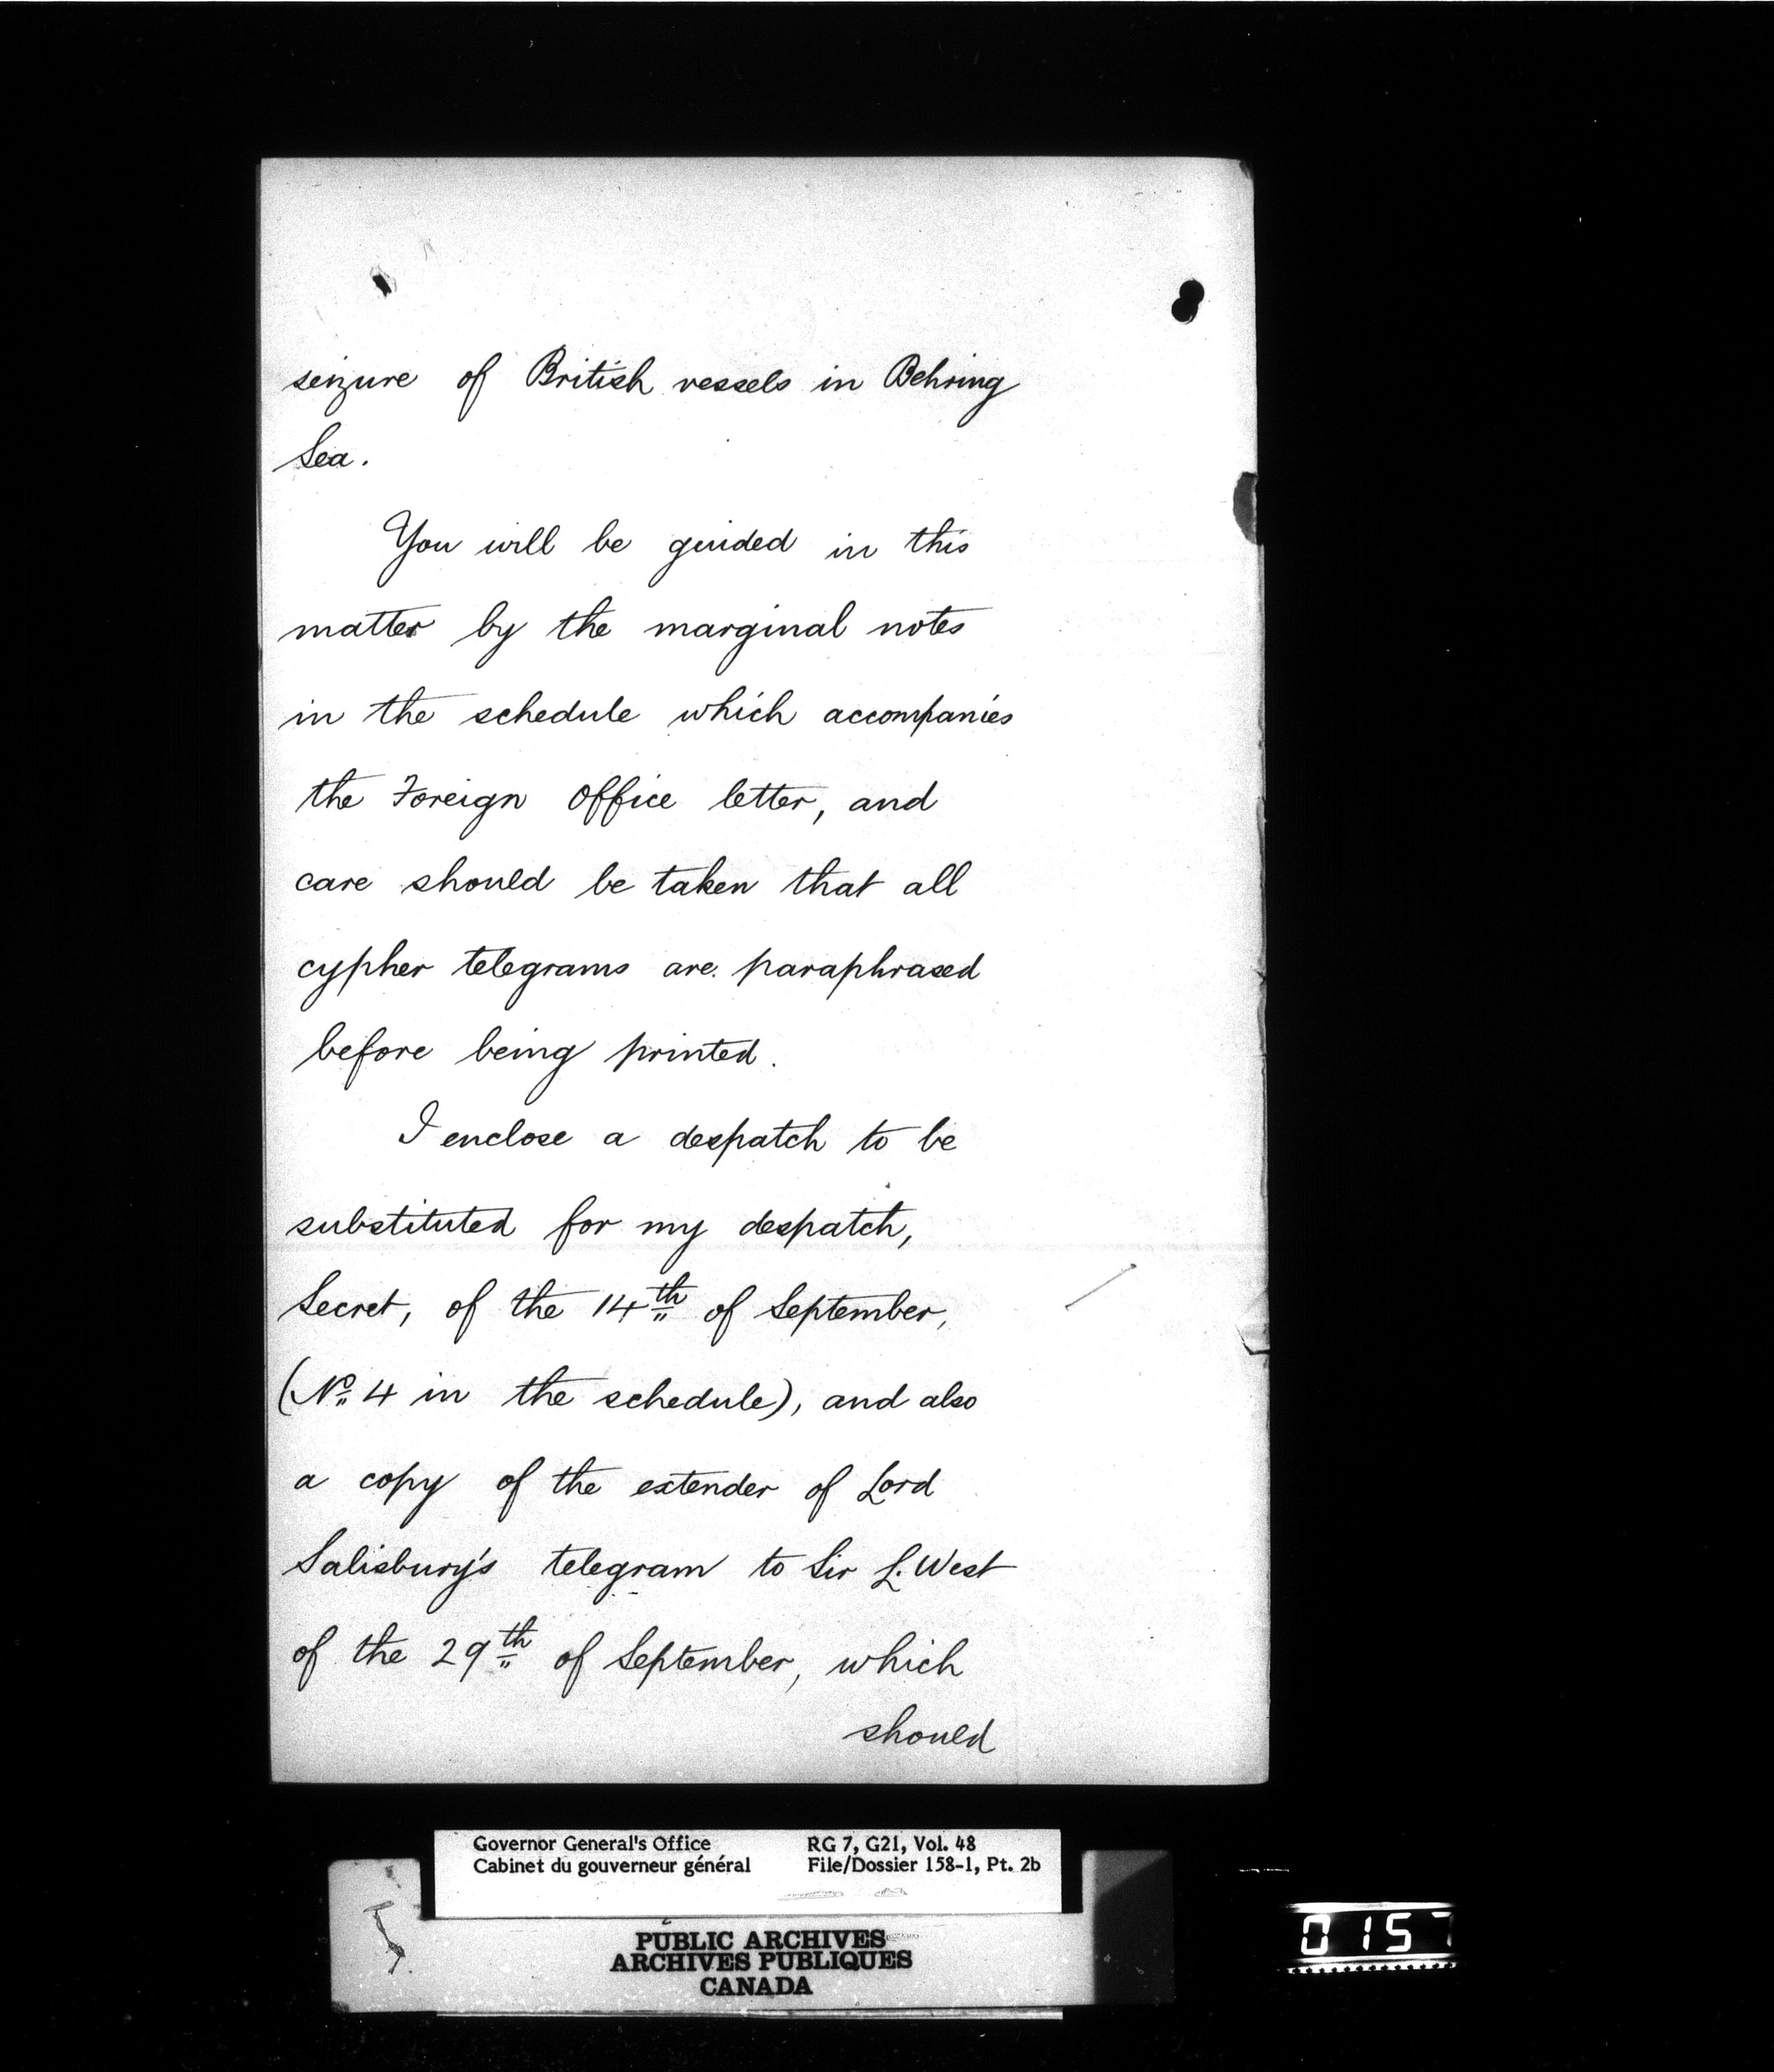 seizure of British vessels in Behring
Sea.
You will be guided in this
matter by the marginal notes
in the schedule which accompanies
the Foreign Office letter, and
care should be taken that all
cypher telegrams are paraphrased
before being printed.
I enclose a despatch to be
substituted for my despatch,
Secret, of the 14th of September,
(No. 4 in the schedule), and also
a copy of the extender of Lord
Salisbury's telegram to Sir L. West
of the 29th of September, which
should
Governor General's Office RG 7, G21, Vol. 48
Cabinet du gouverneur général File/Dossier 158-1, Pt. 2b
PUBLIC ARCHIVES
ARCHIVES PUBLIQUES
CANADA
0157